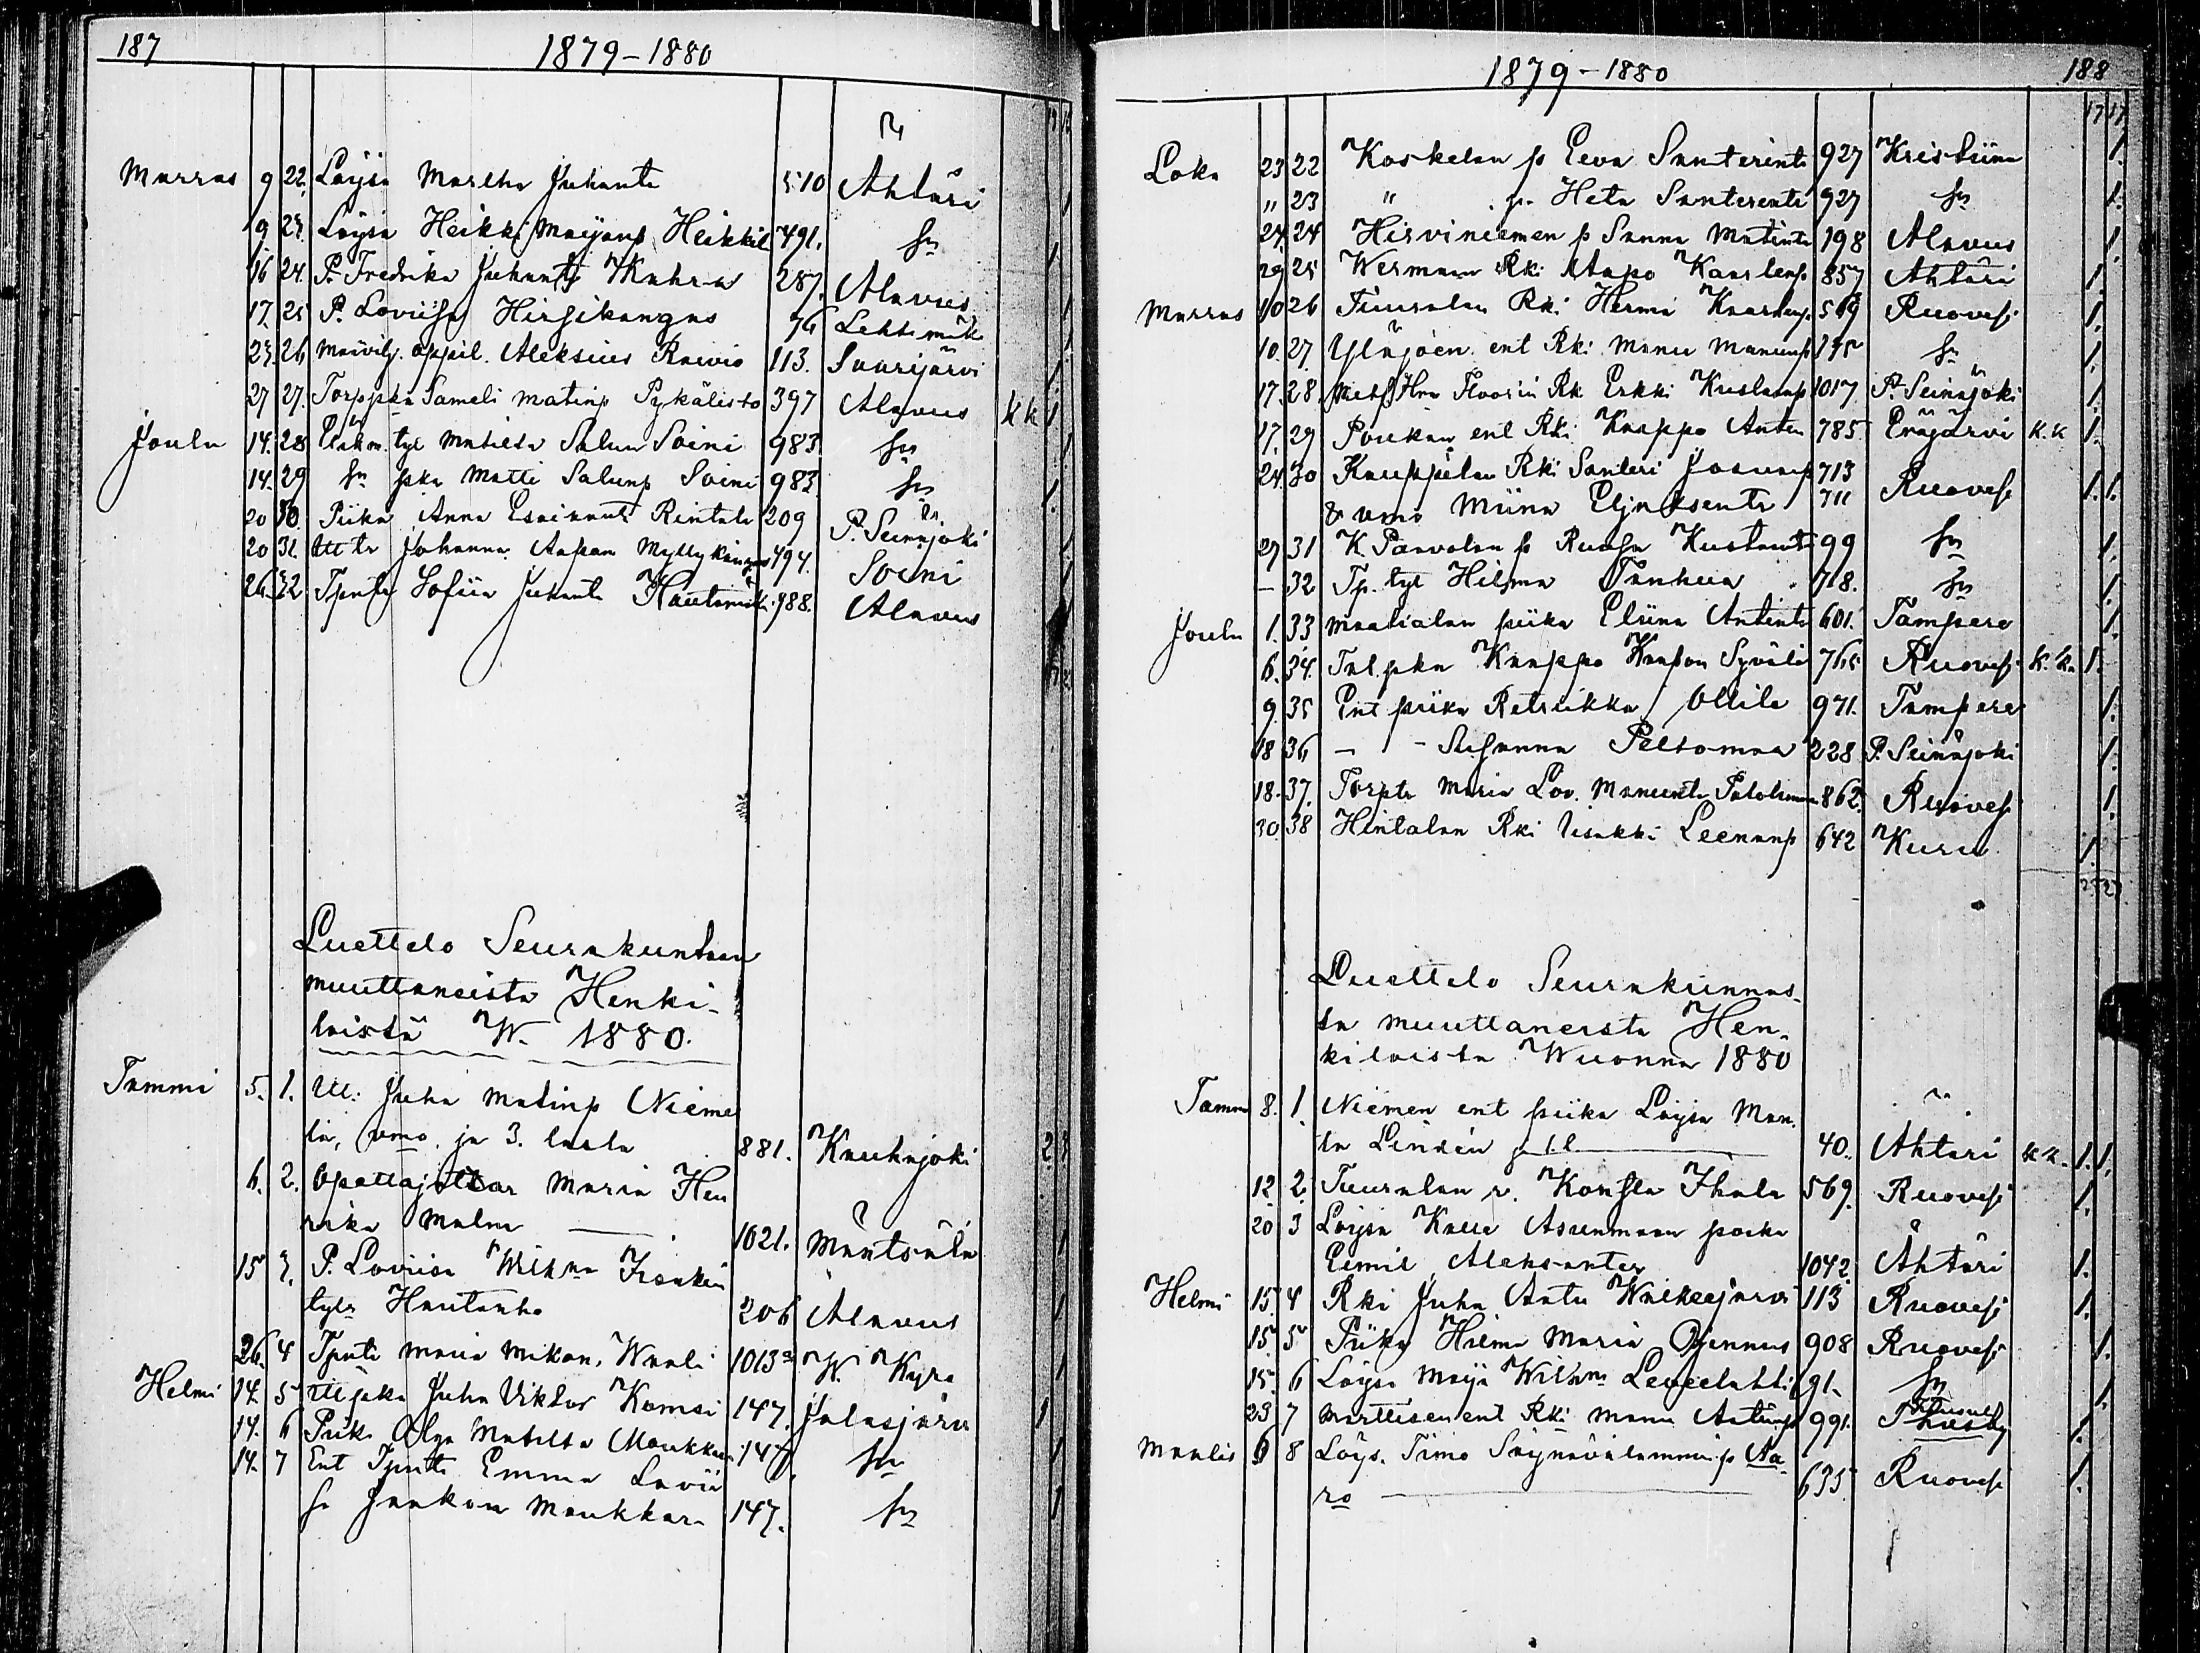 187
1879-1880
Marras 9 22. Löysä Martha Juhante 510 Ähtäri
9 23. Löysä Heikki Maijanp Heikkil 491. sn 1
16 24. P. Fredrika Juhante Kahra 287. Alavus 1
17. 25 P. Loviisa Hirsikangas 76 Lehtimäki
23. 26 Aleksius Raivio 113. Saarijärvi 1
27 27. Torppka Sameli Matinp Pykälistö 397 Alavus kk 1.
Joulu 14. 28 tyt Matilta Salum Soini 983. sn 1
14. 29 sn pka Matti Salunp Soini 983. sn 1.
20 30. Piika Anna Rintala 209 P. Seinäjoki
20 31. Johanna Aapan Myllykangas 494. Soini 1
26. 32 Tpntr Sofiia Juhante Hautamäki 988. Alavus 1
Luettelo Seurakuntaan
muuttaneista Henki-
löistä W. 1880.
Tammi 5. 1. Itl: Juha Matinp Nieme
lä, vmo ja 3. lasta 881. Kauhajoki 2. 3
6. 2. Opettajattar Maria Hen
rika Malm 1021. Mäntsälä 1
15 3. P. Loviisa Wilhna
tytr Hautanho 206 Alavus 1
26. 4 Tpntr Maria Mikon. Waali 1013 W. Kyrö 1
Helmi 14. 5 Itl pka Juha Viktor Komsi 147. Jalasjärvi 1
14. 6 Piik. Olga Matilta Moukkar 147 sn 1
14. 7 Ent Tpntr Emma Lovii
sa Jaakon Moukkar 147. sn 1
1879-1880
188
17 17
Loka 23 22 Koskelan p Eeva Santerint 927 Kristiina 1.
" 23 " p. Heta Santerint 927 sn 1.
24. 24 Hirviniemen p Sanna Matint 198 Alavus 1
29 25 Wermaan Rki Aapo Kaarlenp 857 Ähtäri 1.
Marras 10 26 Tuuralan Rki Hermi Kaarlenp. 569 Ruovesi 1.
10. 27. Yläjoen ent Rki Manu Manunp 175 sn 1.
17. 28. Rk Erkki Kustaanp 1017 P. Seinäjoki 1.
17. 29 Poukan ent Rki Kaappo Antin 785 Eräjärvi k.k 1.
24. 30 Kauppilan Rki Santeri Joosunp 713
& vmo Miina Eljaksentr 711 Ruovesi 1. 1.
27 31 K. Paavolan p Ruusa Kustaant 99 sn 1.
- 32 Tp. tyt Hilma Tanhua 718. sn 1.
Joulu 1. 33 Maatialan piika Eliina Antint 601. Tampere 1.
6. 34. Tal. pka Kaappo Kaapon Syvälä 765 Ruovesi k.k. 1.
9. 35 Ent piika Retriikka Ollila 971. Tampere 1.
18 36 - - Susanna Peltomaa 228 P. Seinäjoki 1.
18. 37. Torptr Maria Lov. Manuntr 862. Ruovesi 1.
30. 38 Hintalan Rki Iisakki Leenanp 642 Kuru 1.
Luettelo Seurakunnas-
ta muuttaneista Hen-
kilöistä Wuonna 1880
Tammi 8. 1. Niemen ent piika Löysä Man
ta Lindén ja 1.l. 40. Ähtäri k.k. 1. 1.
12 2. Tuuralan v. Konsta Ihala 569. Ruovesi 1.
20 3 Löysä Kalle Asunmaan poika
Eemil Aleksanter 1042. Ähtäri 1.
Helmi 15. 4 Rki Juha Antti Walkeejärvi 113 Ruovesi 1.
15. 5 Piika Hilma Maria Ojennus 908 Ruovesi 1.
15. 6 Löysä Maija Wilhna Lepeelahti 91. sn 1.
23 7 Marttisen ent Rki Manu Antinp 991. Thusby 1.
Maalis 6 8 Löys. Timo Säynävälammin p Aa-
ro 635. Ruovesi 1.